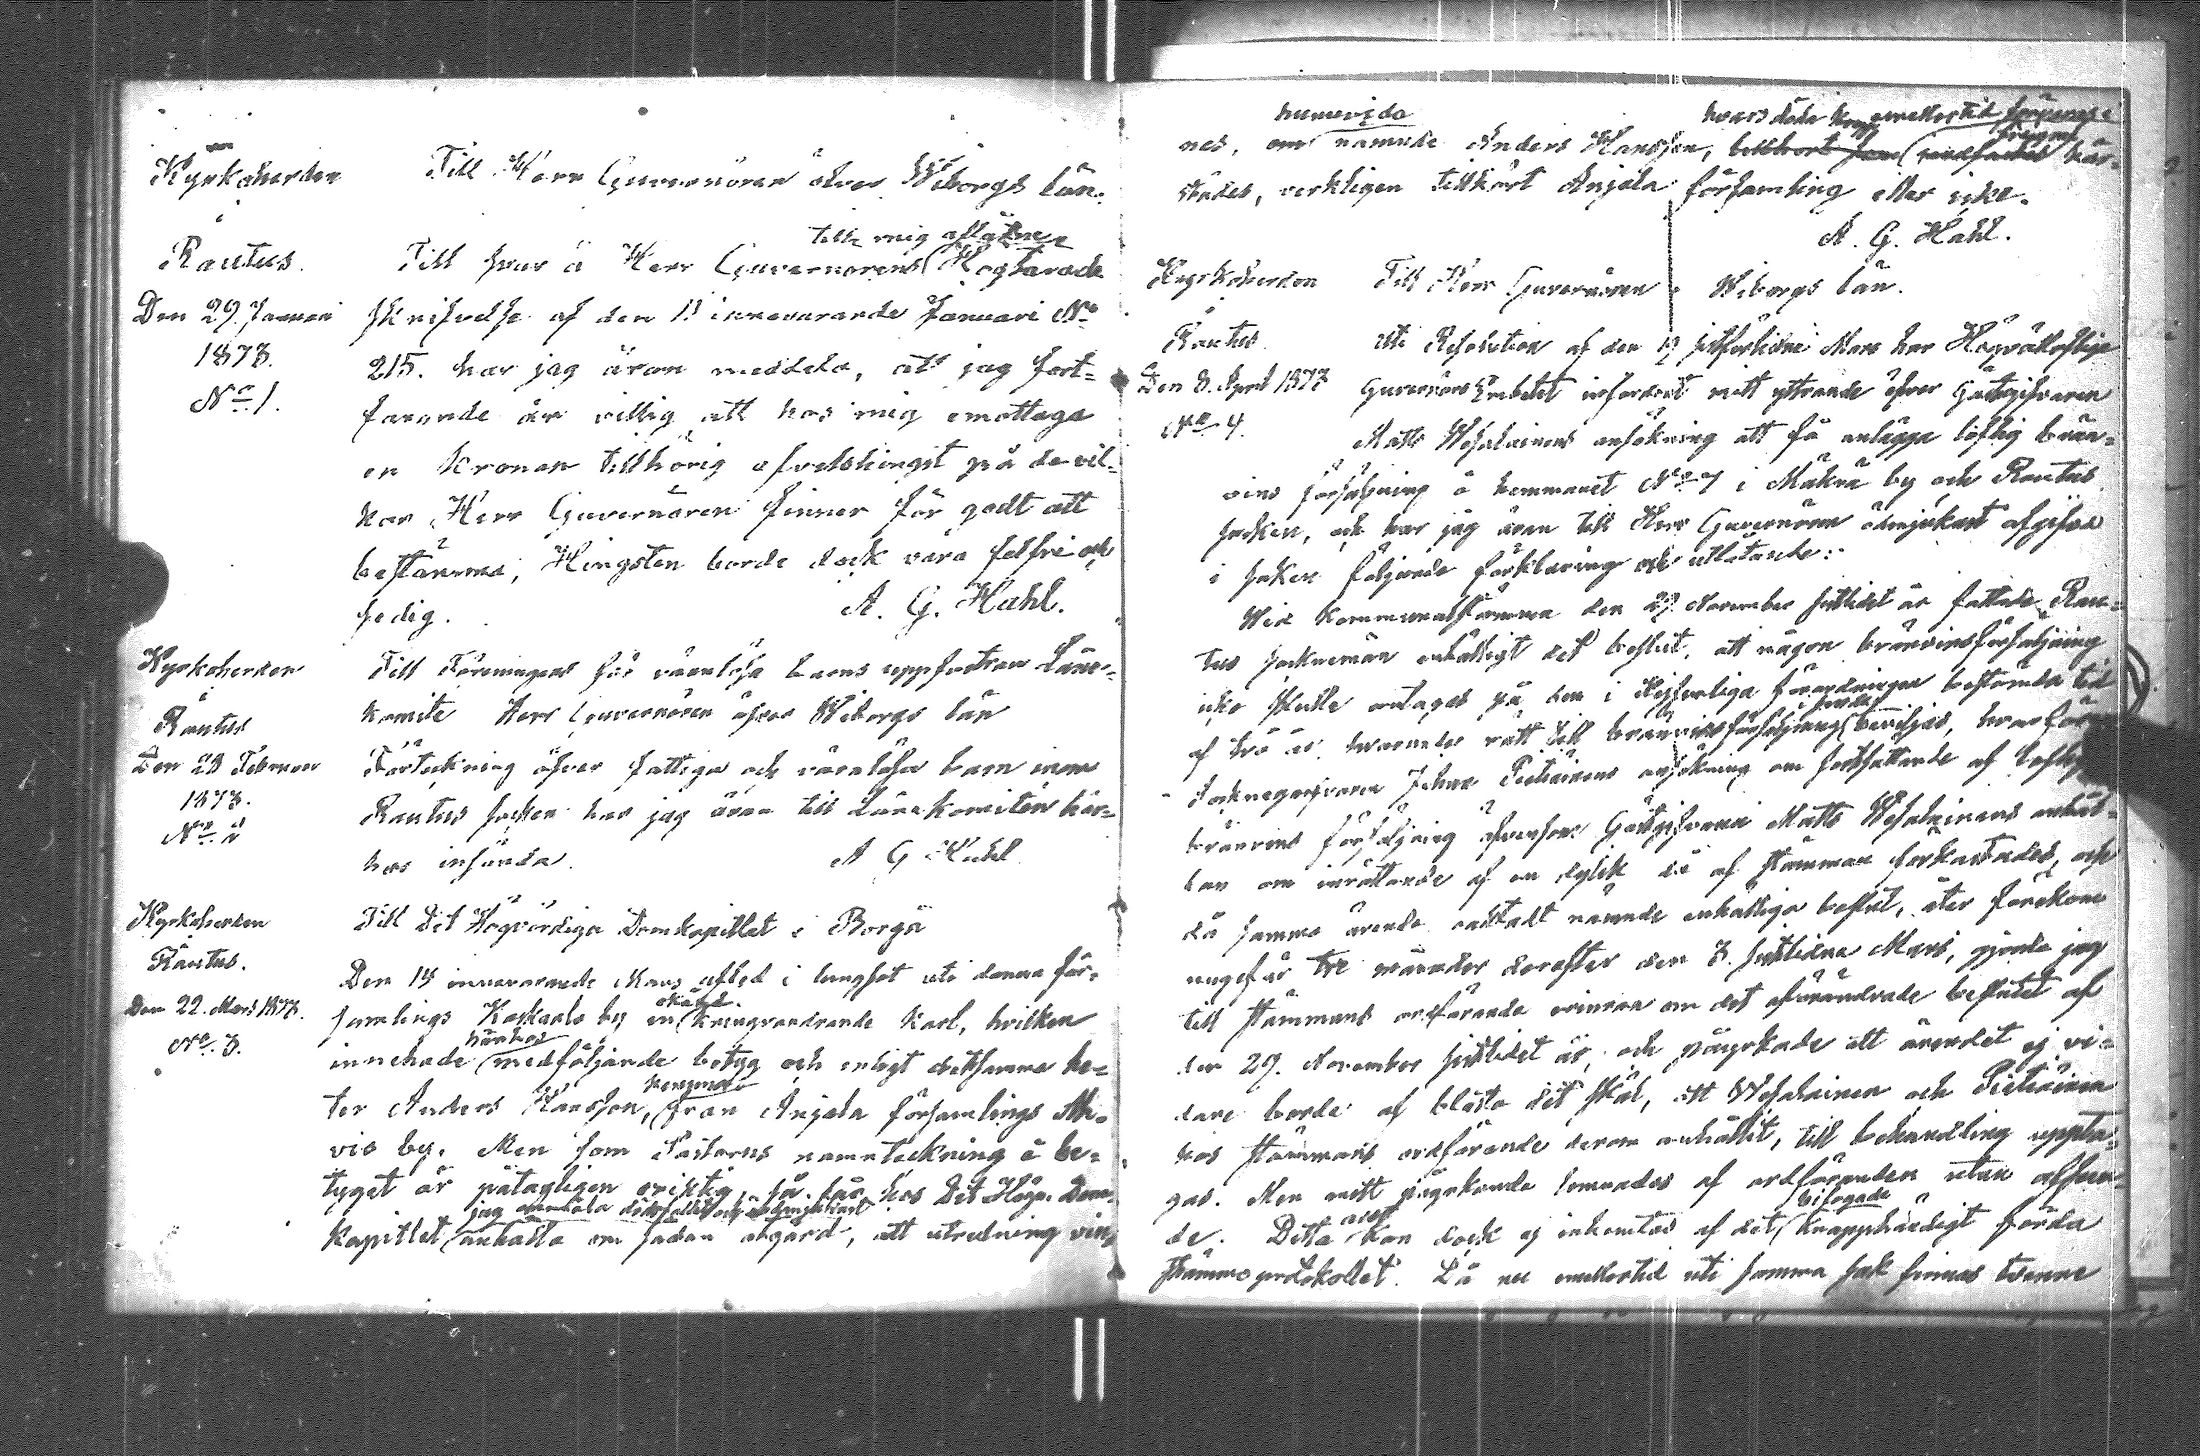 Kyrkoherden
i
Rautus.
Den 29. Januari
1873.
No 1.
Till Herr Guvernören öfver Wiborgs län.
till mig aflåtne
Till svar å Herr Guvernörens Högtärade
skrifvelse af den 11 innevarande Januari No
215. har jag äran meddela, att jag fort-
farande är villig att hos mig emottaga
en Kronan tillhörig afvelshingst på de vil-
kor, Herr Guvernören finner för godt att
bestämma; Hingsten borde dock vara felfri och
sedig.
A. G. Hahl.
Kyrkoherden
i
Rautus
Den 28 Februari
1873.
No 2
Till Föreningens för värnlösa barns uppfostran Läns-
komité Herr Guvernören öfver Wiborgs län
Förteckning öfver fattiga och värnlösa barn inom
Rautus socken har jag äran till Länekomitén här-
hos insända.
A G Hahl
Kyrkoherden
Rautus.
Den 22. Mars 1873.
No 3.
Till Det Högvördiga Domkapitlet i Borgå
Den 15 innevarande Mars afled i lungsot uti denna för-
samlings Koskaala by en kringvandrande karl, hvilken
okänd
härhos
innehade medföljande betyg och enligt detsamma he-
ter Anders Hansson, från Anjala församlings
vis by. Men som Pastorns namnteckning å be-
tyget är påtagligen oriktig, så får hos Det Högv. Dom-
jag anmäla dödsfallet och ödmjukast
kapitlet anhålla om sådan åtgärd, att utredning vin-
huruvida
hvars död emellertid
nes, om nämnde Anders Hansson,
städes, verkligen tillhört Anjala församling eller icke.
A. G. Hahl.
Kyrkoherden
i
Rautus.
Den 8. April 1873
No 4.
Till Herr Guvernören i Wiborgs län.
Uti Resolution af den 19 sistförlidne Mars har Högvällofliga
Guvernörs Embetet infordrat mitt yttrande öfver Gästgifvaren
Matts Wesalainens ansökning att få anlägga loflig brän-
vins försäljning å hemmanet No 7 i Mäkrä by och Rautus
socken, och har jag äran till Herr Guvernören ödmjukast afgifva
i saken följande förklaring och utlåtande:
Wid Kommunalstämma den 29. November sistlidet år fattade Rau-
tus sockenmän enhälligt det beslut, att någon bränvinsförsäljning
icke skulle antagas på den i Kejserliga förordningen bestämda tid
af två år, hvarunder rätt till bränvinsförsäljning beviljas, hvarför
Socknegarfvaren Johan Pietiäinens ansökning om fortsättande af loflig
bränvins försäljning äfvensom Gästgifvaren Matts Wesalainens anhål-
lan om inrättande af en dylik då af stämman förkastades, och
då samma ärende oaktadt nämnde enhälliga beslut, åter förekom
ungefär tre månader derefter den 3. sistlidne Mars, gjorde jag
till stämmans ordförande erinran om det oförändrade beslutet af
den 29. November sistlidet år, och påyrkade att ärendet ej vi-
dare borde af blotta det skäl, att Wesalainen och Pietiäinen
hos stämmans ordförande derom anhållit, till behandling uppta-
gas. Men mitt påyrkande lemnades af ordföranden utan afseen-
de. Detta kan dock ej inhemtas af det knapphändigt förda
bilogade
stämmoprotokollet. Då nu emellertid uti samma sak finnas tvenne